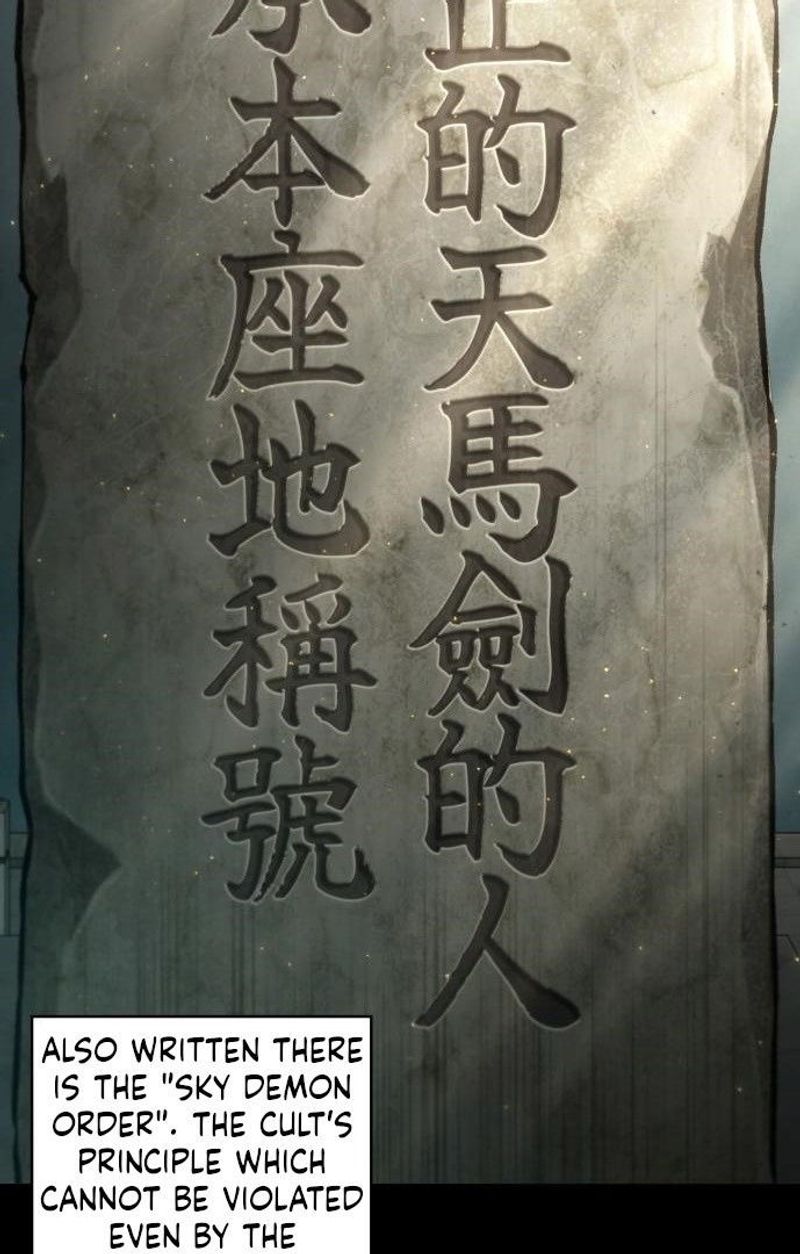 的天馬劍的人
本座地稱號
ALSO WRITTEN THERE
IS THE "SKY DEMON
ORDER". THE CULT'S
PRINCIPLE WHICH
CANNOT BE VIOLATED
EVEN BY THE